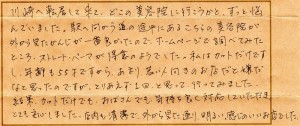 川崎へ転居して来て、どこの美容院に行こうかと、ずっと悩
んでいました。駅へ向かう道の途中にあるこちらの美容院が
外から見たかんじが一番良かったので、ホームページで調べてみた
ところ、ストレートパーマが得意のようでした。私はカットだけです
し、年齢も55才ですから、あまり若い人向きのお店だと嫌だ
なと思ったのですが、とりあえず1回と思って行ってみました。
結果、カットだけでも、おばさんでも気持ち良く対応していただき
とても良いました。店内も清潔で、外から見た通り、明るい感じのいいお店でした。